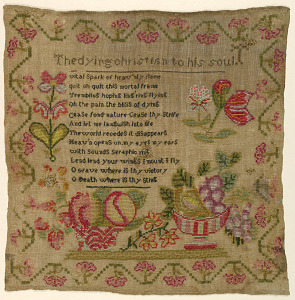 The dying christian to his soul
vital Spark of heav'nly flame
quit oh quit this mortal frame
Trembling hoping ling'ring flying
Oh the pain the bliss of dying
Cease fond nature Cease thy Strife
And let me languish into life
The world recedes it disappears
Heav'n opens on my eyes my ears
With Sounds Seraphic ring
Lend lend your wings I mount I fly
O Grave where is thy victory
O Death where is thy Sting